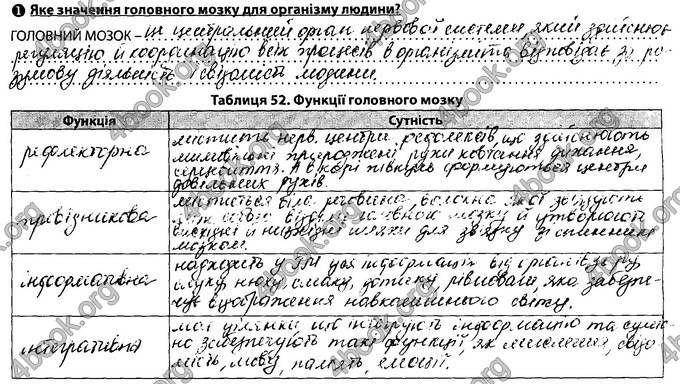 1 Яке значення головного мозку для організму людини?
ГОЛОВНИЙ МОЗОК – це центральний орган нервової системи який здійснює
регуляцію й координацію всіх процесів в організмі та відповідає за ро-
зумову діяльність і свідомість людини.
Таблиця 52. Функції головного мозку
Функція Сутність
рефлекторна
містить нерв. центри рефлексів, що здійснюють
мимовільні природжені рухи ковтання, дихання,
серцебиття. А в корі півкуль формуються центри
довільних рухів.
провідникова
міститься біла речовина, волокна якої зв'язують
між собою відділи головного мозку й утворюють
висхідні й низхідні шляхи для зв'язку зі спинним
мозком.
інформативна
надходить у ГМ уся інформація від органів зору,
слуху, нюху, смаку, дотику, рівноваги, яка забезпе-
чує відображення навколишнього світу.
інтегративна
має ділянки що інтегрують інформацію та
забезпечують такі функції, як мислення, свідо-
мість, мову, пам'ять, емоції.
4book.org